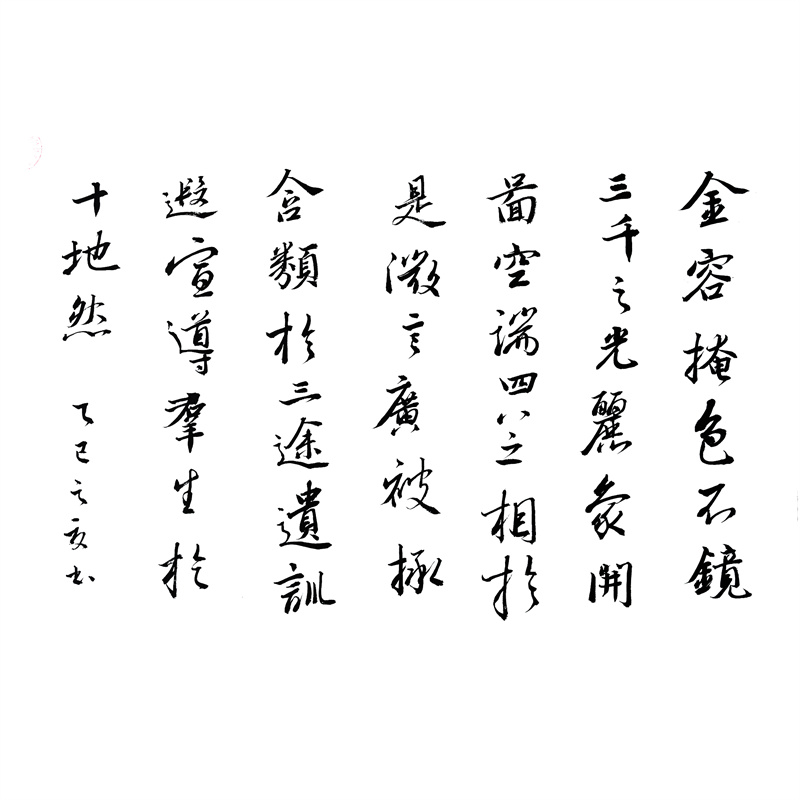 金容掩色不鏡
三千之光麗象開
圖空端四八之相於
是微言廣被拯
含類於三途遺訓
遐宣導羣生於
十地然 乙巳之夏书